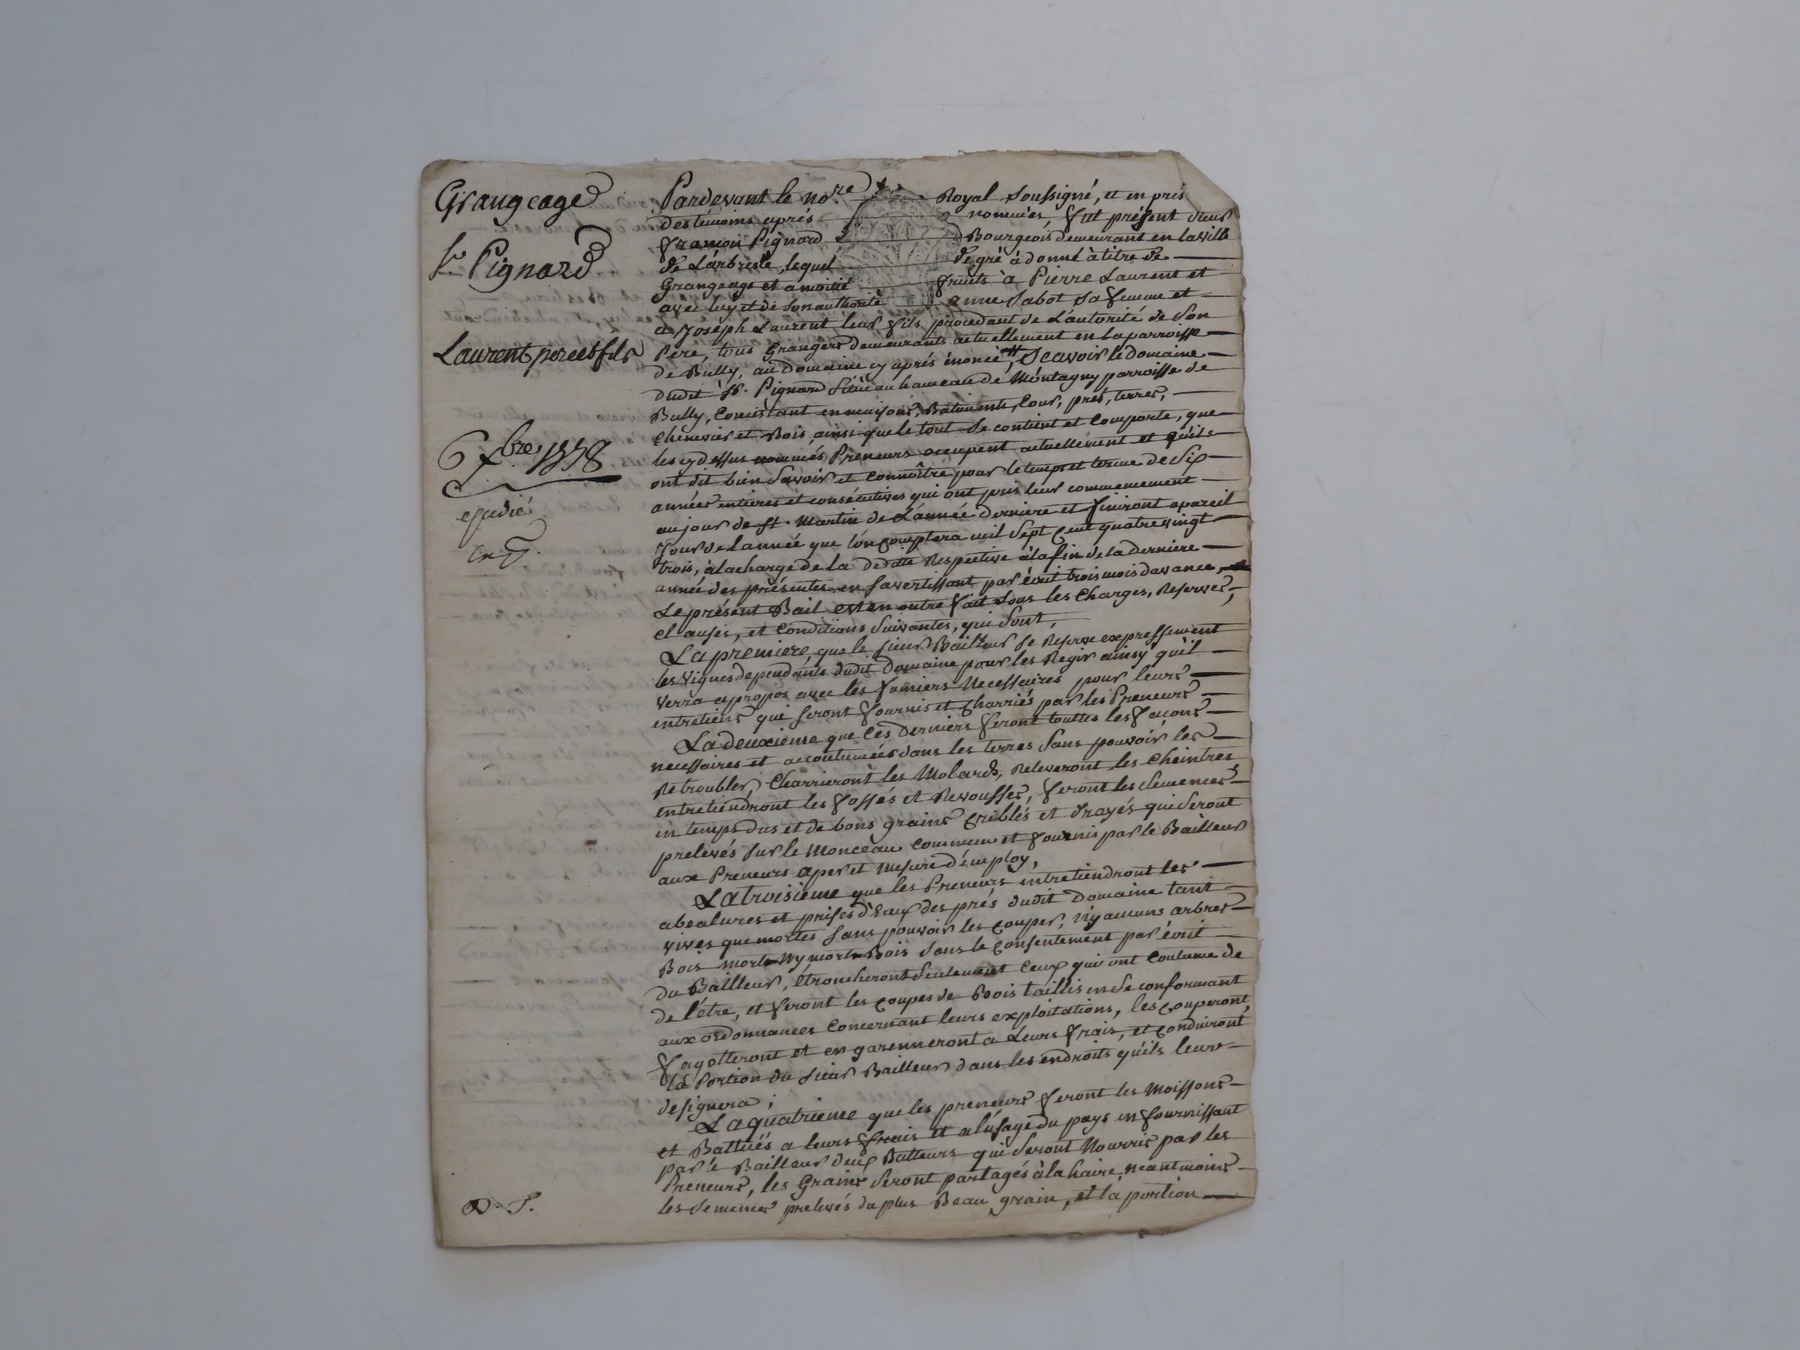 Grangeage
Sr. Pignard
Laurent pere et fils
6 xbre 1778
expedié
Pardevant le nore Royal soussigné, et en prés
des témoins après nommées, fut présent sieur
François Pignard Bourgeois demeurant en la ville
de L'arbresle, lequel de gré à donné à titre de
Grangeage et a moitié fruits à Pierre Laurent et
avec luy et de son authorité anne Sabot sa femme et
a Joseph Laurent leur fils procedant de L'autorité de son
Pere, tous Grangers demeurants actuellement en la parroisse
de Bully, au Domaine cy après énoncé, Scavoir le domaine
dudit Sr. Pignard situé au hameau de Montagny parroisse de
Bully, Consistant en maisons, Batiments, Cour, prés, terres,
Chenevier et Bois, ainsi que le tout se contient et Comporte, que
les cy dessus nommés Preneurs occupent actuellement et qu'ils
ont dit bien savoir et connoître pour le temps et terme de Six
années entieres et consécutives qui ont pris leur commencement
au jour de St. Martin de L'année derniere et finiront a pareil
Jour de l'année que l'on comptera mil Sept Cent quatre vingt
trois, à la charge de la Dedatte Respective à la fin de la derniere
année des présentes en s'avertissant par écrit trois mois d'avance,
Le présent Bail est en outre fait sous les Charges, Reserves,
Clauses, et Conditions Suivantes, qui sont,
La premiere que le sieur Bailleur se Reserve expressement
les Vignes dependants dudit Domaine pour les Regir ainsy qu'il
verra apropos avec les fumiers Necessaires pour leurs
entretiens qui seront fournis et Charriés par les Preneurs
La deuxieme que Ces Derniers feront touttes les façons
necessaires et accoutumées dans les terres sans pouvoir les
Retroubler, Charrieront les Molards, Releveront les Cheintres
entretiendront les fossés et Revousses, feront les semences
en temps dus et de bons grains Criblés et Drayés qui seront
prelevés sur le Monceau commun et fournis par le Bailleur
aux Preneurs a peret Mesure d'employ,
La troisieme que les Preneurs entretiendront les
abealures et prises d'Eaux des prés dudit Domaine tant
vives que mortes sans pouvoir les couper, ny aucuns arbres
Bois morts ny mort Bois sans le Consentement par écrit
du Bailleur, Etroncheront seulement Ceux qui ont Coutume de
de l'être, et feront les coupes de Bois taillis en se conformant
aux ordonnances Concernant leurs exploitations, les Couperont,
fagotteront et en garenneront a Leurs frais, et Conduiront
la Portion du sieur Bailleur dans les endroits qu'ils leur
designera ;
La quatrieme que les preneurs feront les Moissons
et Battués a leurs frais et a l'usage du pays en fournissant
par le Bailleur deux Batteurs qui seront Nourris par les
Preneurs, les Grains seront partagés à la haire, neantmoins
les Semences prelevés du plus Beau grain, et la portion